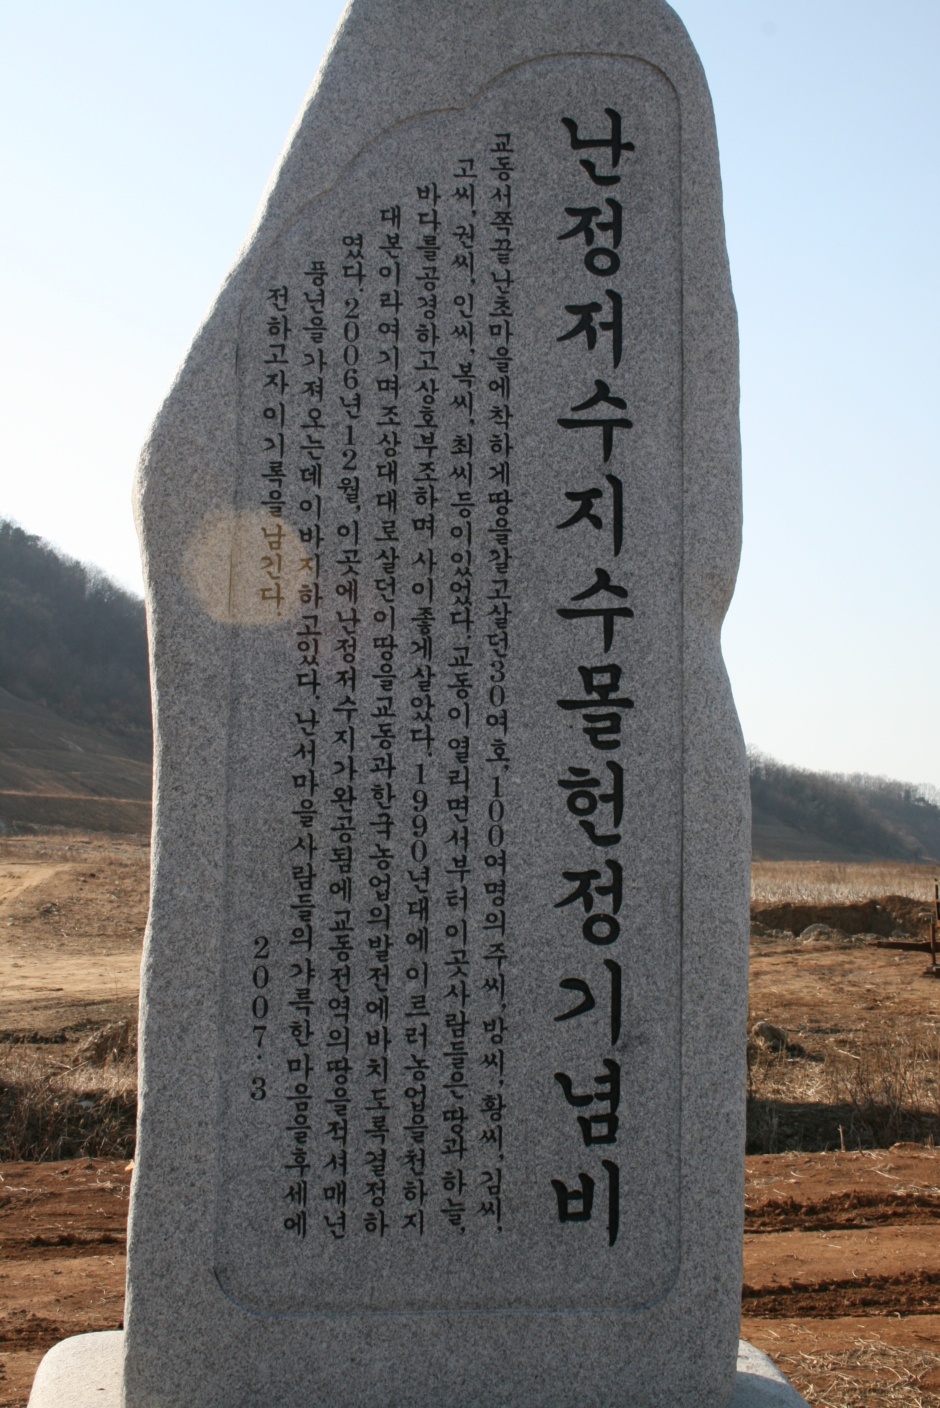 난정저수지수몰헌정기념비
교동서쪽끝난초마을에착하게땅을갈고살던30여호,100여명의주씨,방씨,황씨,김씨,
고씨,권씨,인씨,복씨,최씨등이있었다.교동이열리면서부터이곳사람들은땅과하늘,
바다를공경하고상호부조하며사이좋게살았다.1990년대에이르러농업을천하지
대본이라여기며조상대대로살던이땅을교동과한국농업의발전에바치도록결정하
였다.2006년12월,이곳에난정저수지가완공됨에교동전역의땅을적셔매년
풍년을가져오는데이바지하고있다.난서마을사람들의갸륵한마음을후세에
전하고자이기록을남긴다.
2007.3